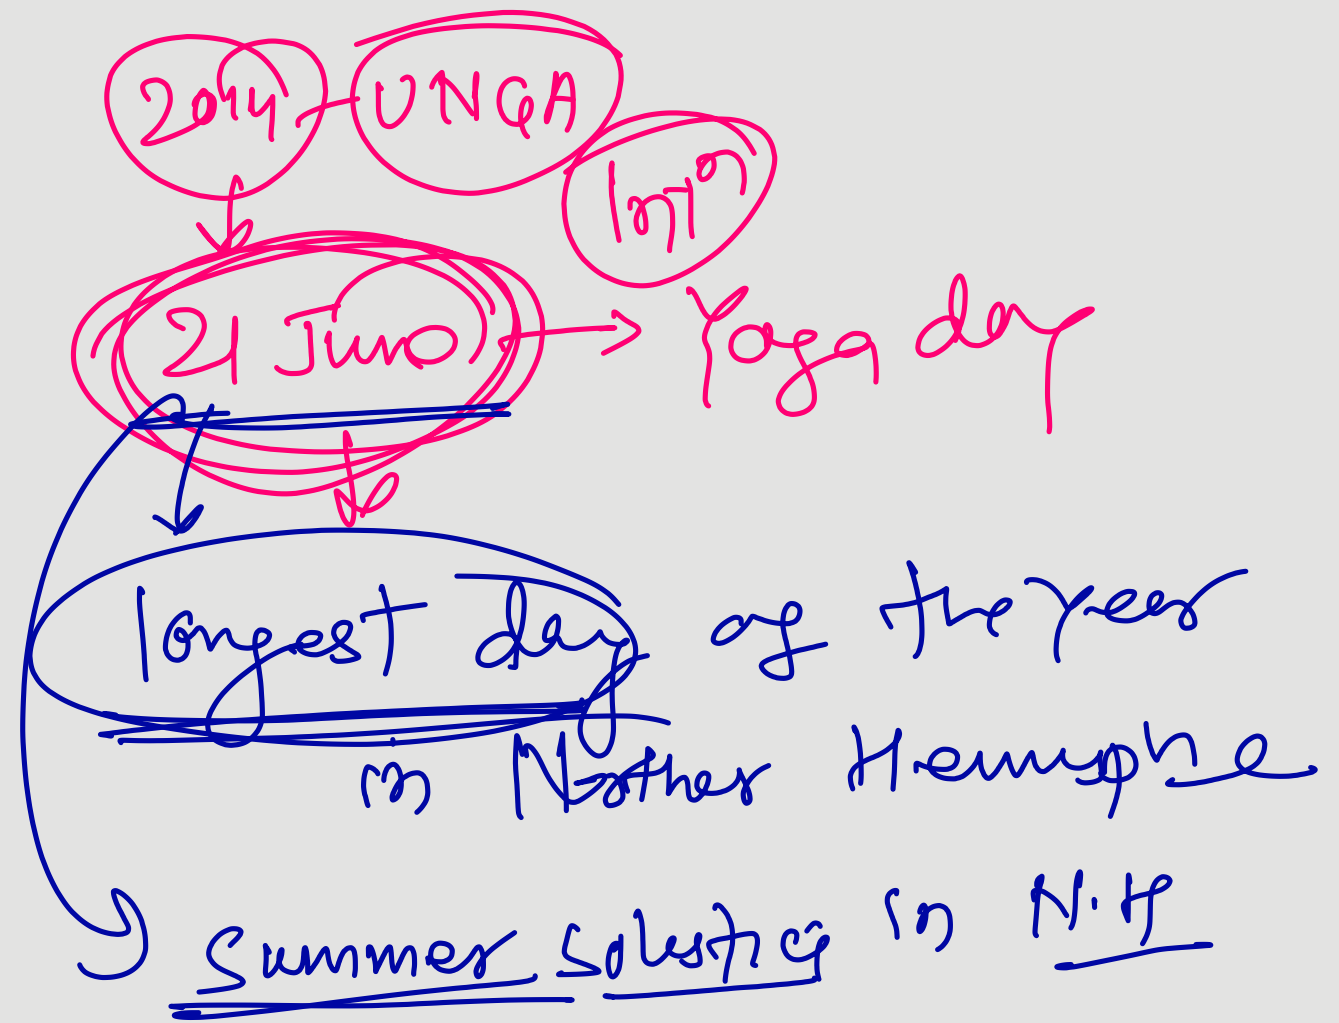 2014 - UNGA
21 June → Yoga day
longest day of the year
in Norther Hemisphe
Summer Solstice in N.H